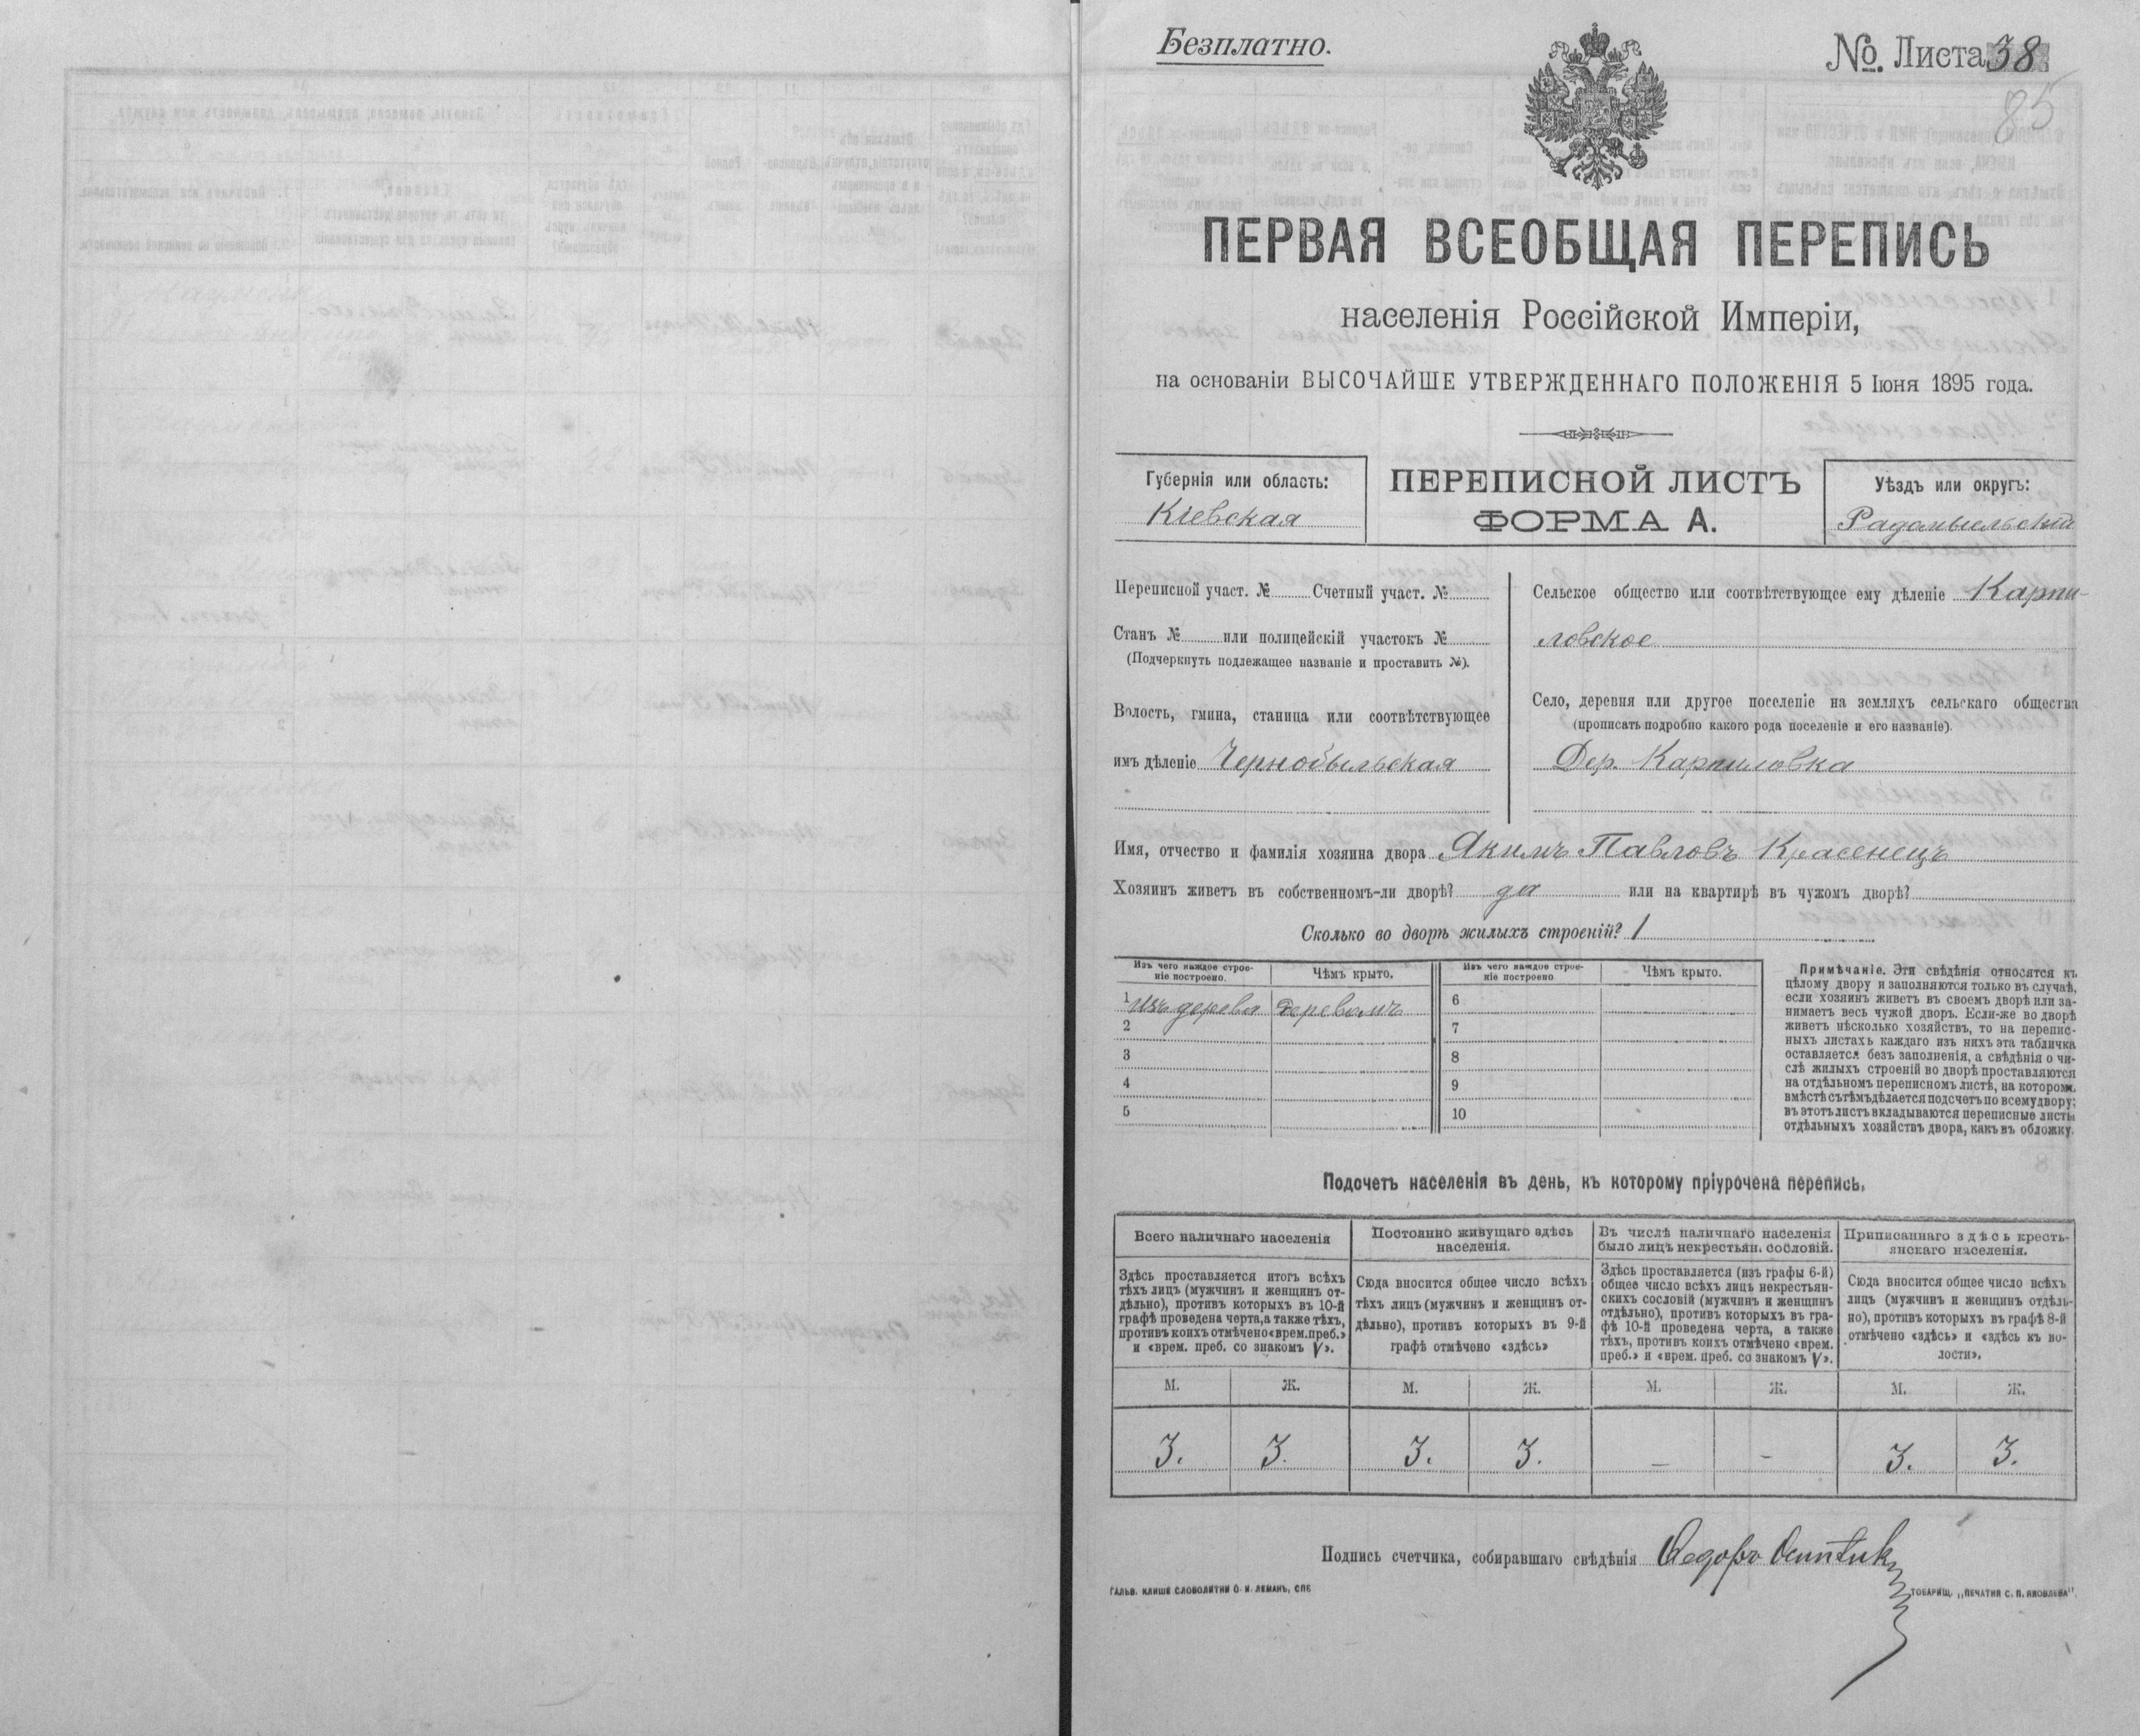 Безплатно.
№. Листа 38
85
ПЕРВАЯ ВСЕОБЩАЯ ПЕРЕПИСЬ
населенія Россійской Имперіи,
на основаніи ВЫСОЧАЙШЕ УТВЕРЖДЕННАГО ПОЛОЖЕНІЯ 5 Іюня 1895 года.
Губернія или область:
Кіевская
ПЕРЕПИСНОЙ ЛИСТЪ
ФОРМА А.
Уѣздъ или округъ:
Радомысльскій
Переписной участ. № Счетный участ. №
Станъ № или полицейскій участокъ №
(Подчеркнуть подлежащее названіе и проставить №).
Волость, гмина, станица или соотвѣтствующее
имъ дѣленіе Чернобыльская
Сельское общество или соотвѣтствующее ему дѣленіе Карпи-
ловское
Село, деревня или другое поселеніе на земляхъ сельскаго общества
(прописать подробно какого рода поселеніе и его названіе).
Дер. Карпиловка
Имя, отчество и фамилія хозяина двора Якимъ Павловъ Красенецъ
Хозяинъ живетъ въ собственномъ-ли дворѣ? да или на квартирѣ въ чужомъ дворѣ?
Сколько во дворѣ жилыхъ строеній? 1
Изъ чего каждое строе-
ніе построено.
Чѣмъ крыто.
Изъ чего каждое строе-
ніе построено
Чѣмъ крыто.
1 изъ дерева деревомъ 6
2 7
3 8
4 9
5 10
Примѣчаніе. Эти свѣдѣнія относятся къ
цѣлому двору и заполняются только въ случаѣ,
если хозяинъ живетъ въ своемъ дворѣ или за-
нимаетъ весь чужой дворъ. Если-же во дворѣ
живетъ нѣсколько хозяйствъ, то на перепис-
ныхъ листахъ каждаго изъ нихъ эта табличка
оставляется безъ заполненія, а свѣдѣнія о чи-
слѣ жилыхъ строеній во дворѣ проставляются
на отдѣльномъ переписномъ листѣ, на которомъ
вмѣстѣ съ тѣмъ дѣлается подсчетъ по всему двору;
въ этотъ листъ вкладываются переписные листы
отдѣльныхъ хозяйствъ двора, какъ въ обложку.
Подсчетъ населенія въ день, къ которому пріурочена перепись.
Всего наличнаго населенія
Постоянно живущаго здѣсь
населенія.
Въ числѣ наличнаго населенія
было лицъ некрестьян. сословій.
Приписаннаго здѣсь кресть-
янскаго населенія.
Здѣсь проставляется итогъ всѣхъ
тѣхъ лицъ (мужчинъ и женщинъ от-
дѣльно), противъ которыхъ въ 10-й
графѣ проведена черта, а также тѣхъ,
противъ коихъ отмѣчено «врем. преб.»
и «врем. преб. со знакомъ V».
Сюда вносится общее число всѣхъ
тѣхъ лицъ (мужчинъ и женщинъ от-
дѣльно), противъ которыхъ въ 9-й
графѣ отмѣчено «здѣсь»
Здѣсь проставляется (изъ графы 6-й)
общее число всѣхъ лицъ некрестьян-
скихъ сословій (мужчинъ и женщинъ
отдѣльно), противъ которыхъ въ гра-
фѣ 10-й проведена черта, а также
тѣхъ, противъ коихъ отмѣчено «врем.
преб.» и «врем. преб. со знакомъ V».
Сюда вносится общее число всѣхъ
лицъ (мужчинъ и женщинъ отдѣль-
но), противъ которыхъ въ графѣ 8-й
отмѣчено «здѣсь» и «здѣсь къ во-
лости».
М. Ж. М. Ж. М. Ж. М. Ж.
3. 3. 3. 3. — - 3. 3.
Подпись счетчика, собиравшаго свѣдѣнія Ѳедоръ
ГАЛЬВ. КЛИШЕ СЛОВОЛИТНИ О. И. ЛЕМАНЪ, СПБ
ТОВАРИЩ. „ПЕЧАТНЯ С. П. ЯКОВЛЕВА".